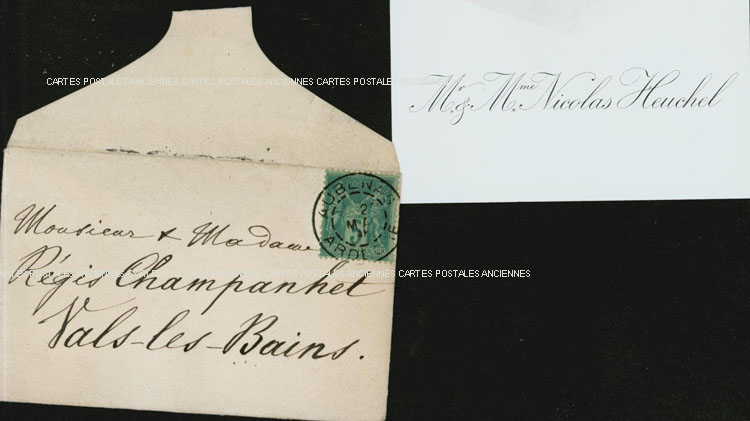 CARTES POSTALES ANCIENNES CARTES POSTALES ANCIENNES CARTES POSTALES ANCIENNES
Mr & Mme Nicolas Heuchel
AUBENAS
2
ARDECHE
Monsieur & Madame
CARTES POSTALES ANCIENNES CARTES POSTALES ANCIENNES
Régis Champanhet
Vals-les-Bains.